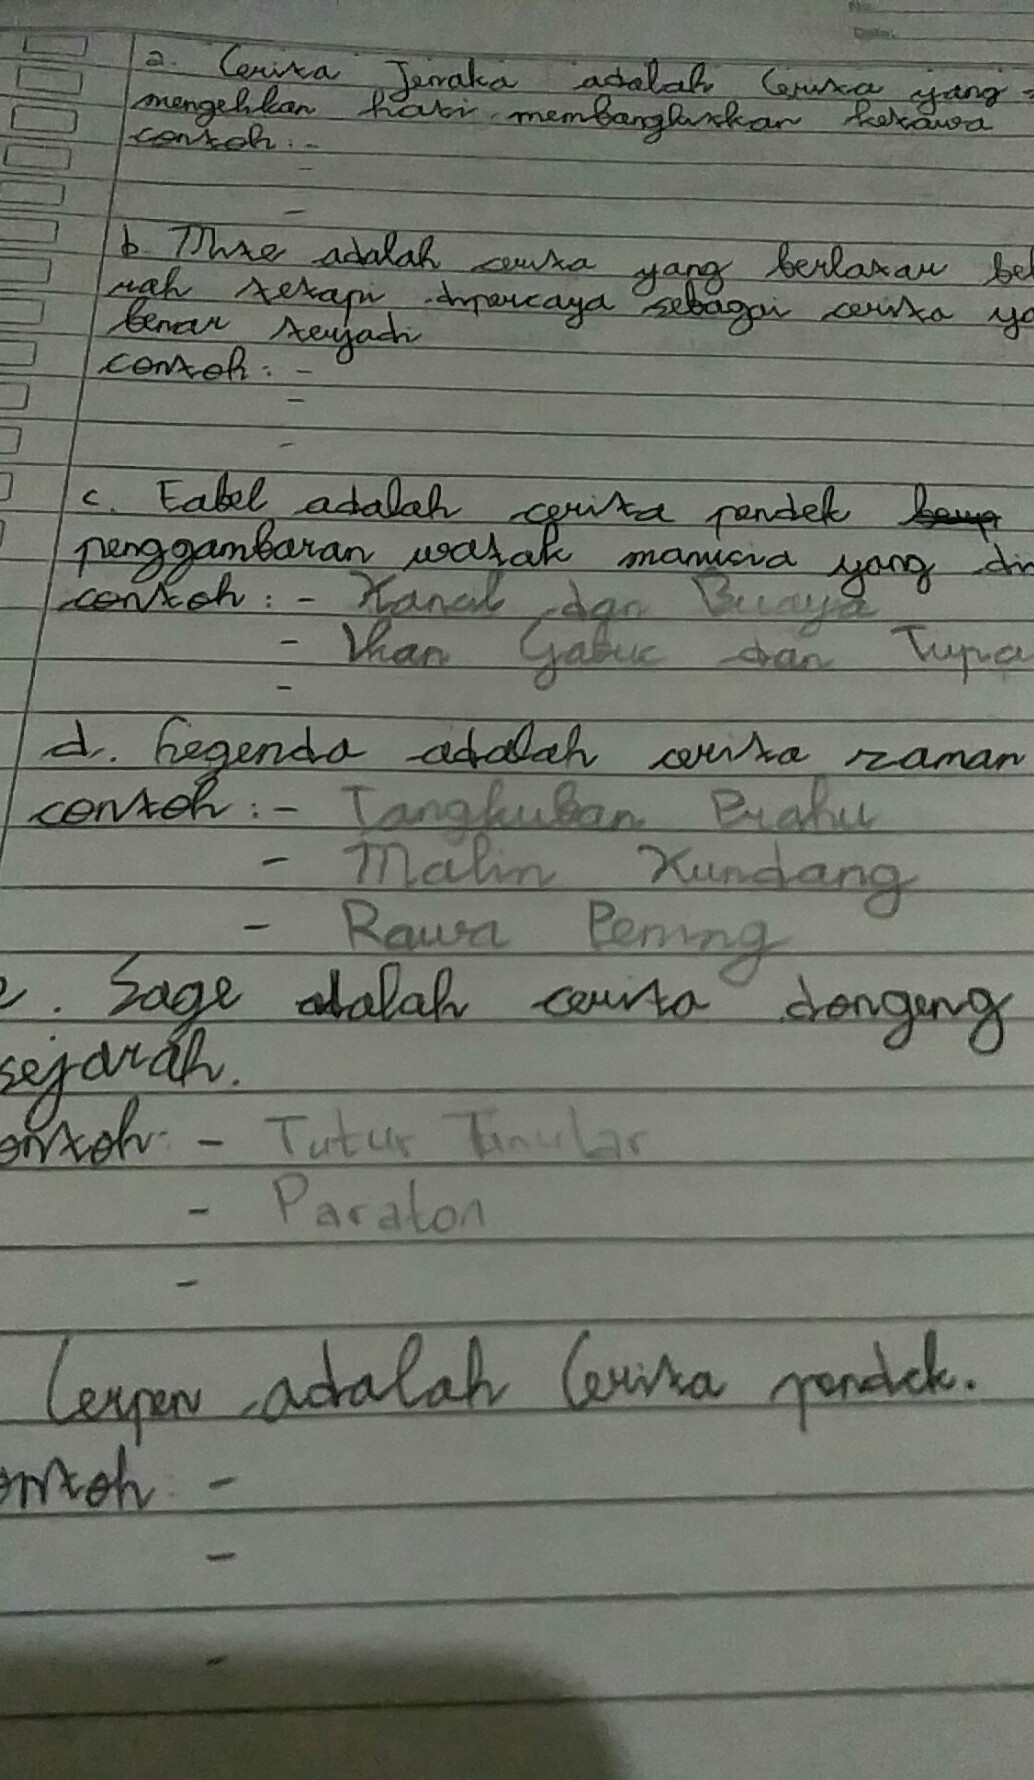 No.
Date:
a. Cerita Jenaka adalah Cerita yang
mengelikan hati, membangkitkan ketawa
contoh: -
-
-
b. Mite adalah cerita yang berlatar bel
rah tetapi dipercaya sebagai cerita ya
benar terjadi
contoh: -
-
-
c. Fabel adalah cerita pendek
penggambaran watak manusia yang di
contoh: - Kancil dan Buaya
- Ikan Gabuc dan Tupa
-
d. Legenda adalah cerita zaman
contoh: - Tangkuban Prahu
- Malin Kundang
- Rawa Pening
e. Sage adalah cerita dongeng
sejarah.
ontoh: - Tutur Tinular
- Paraton
-
Cerpen adalah Cerita pendek.
ontoh -
-
-